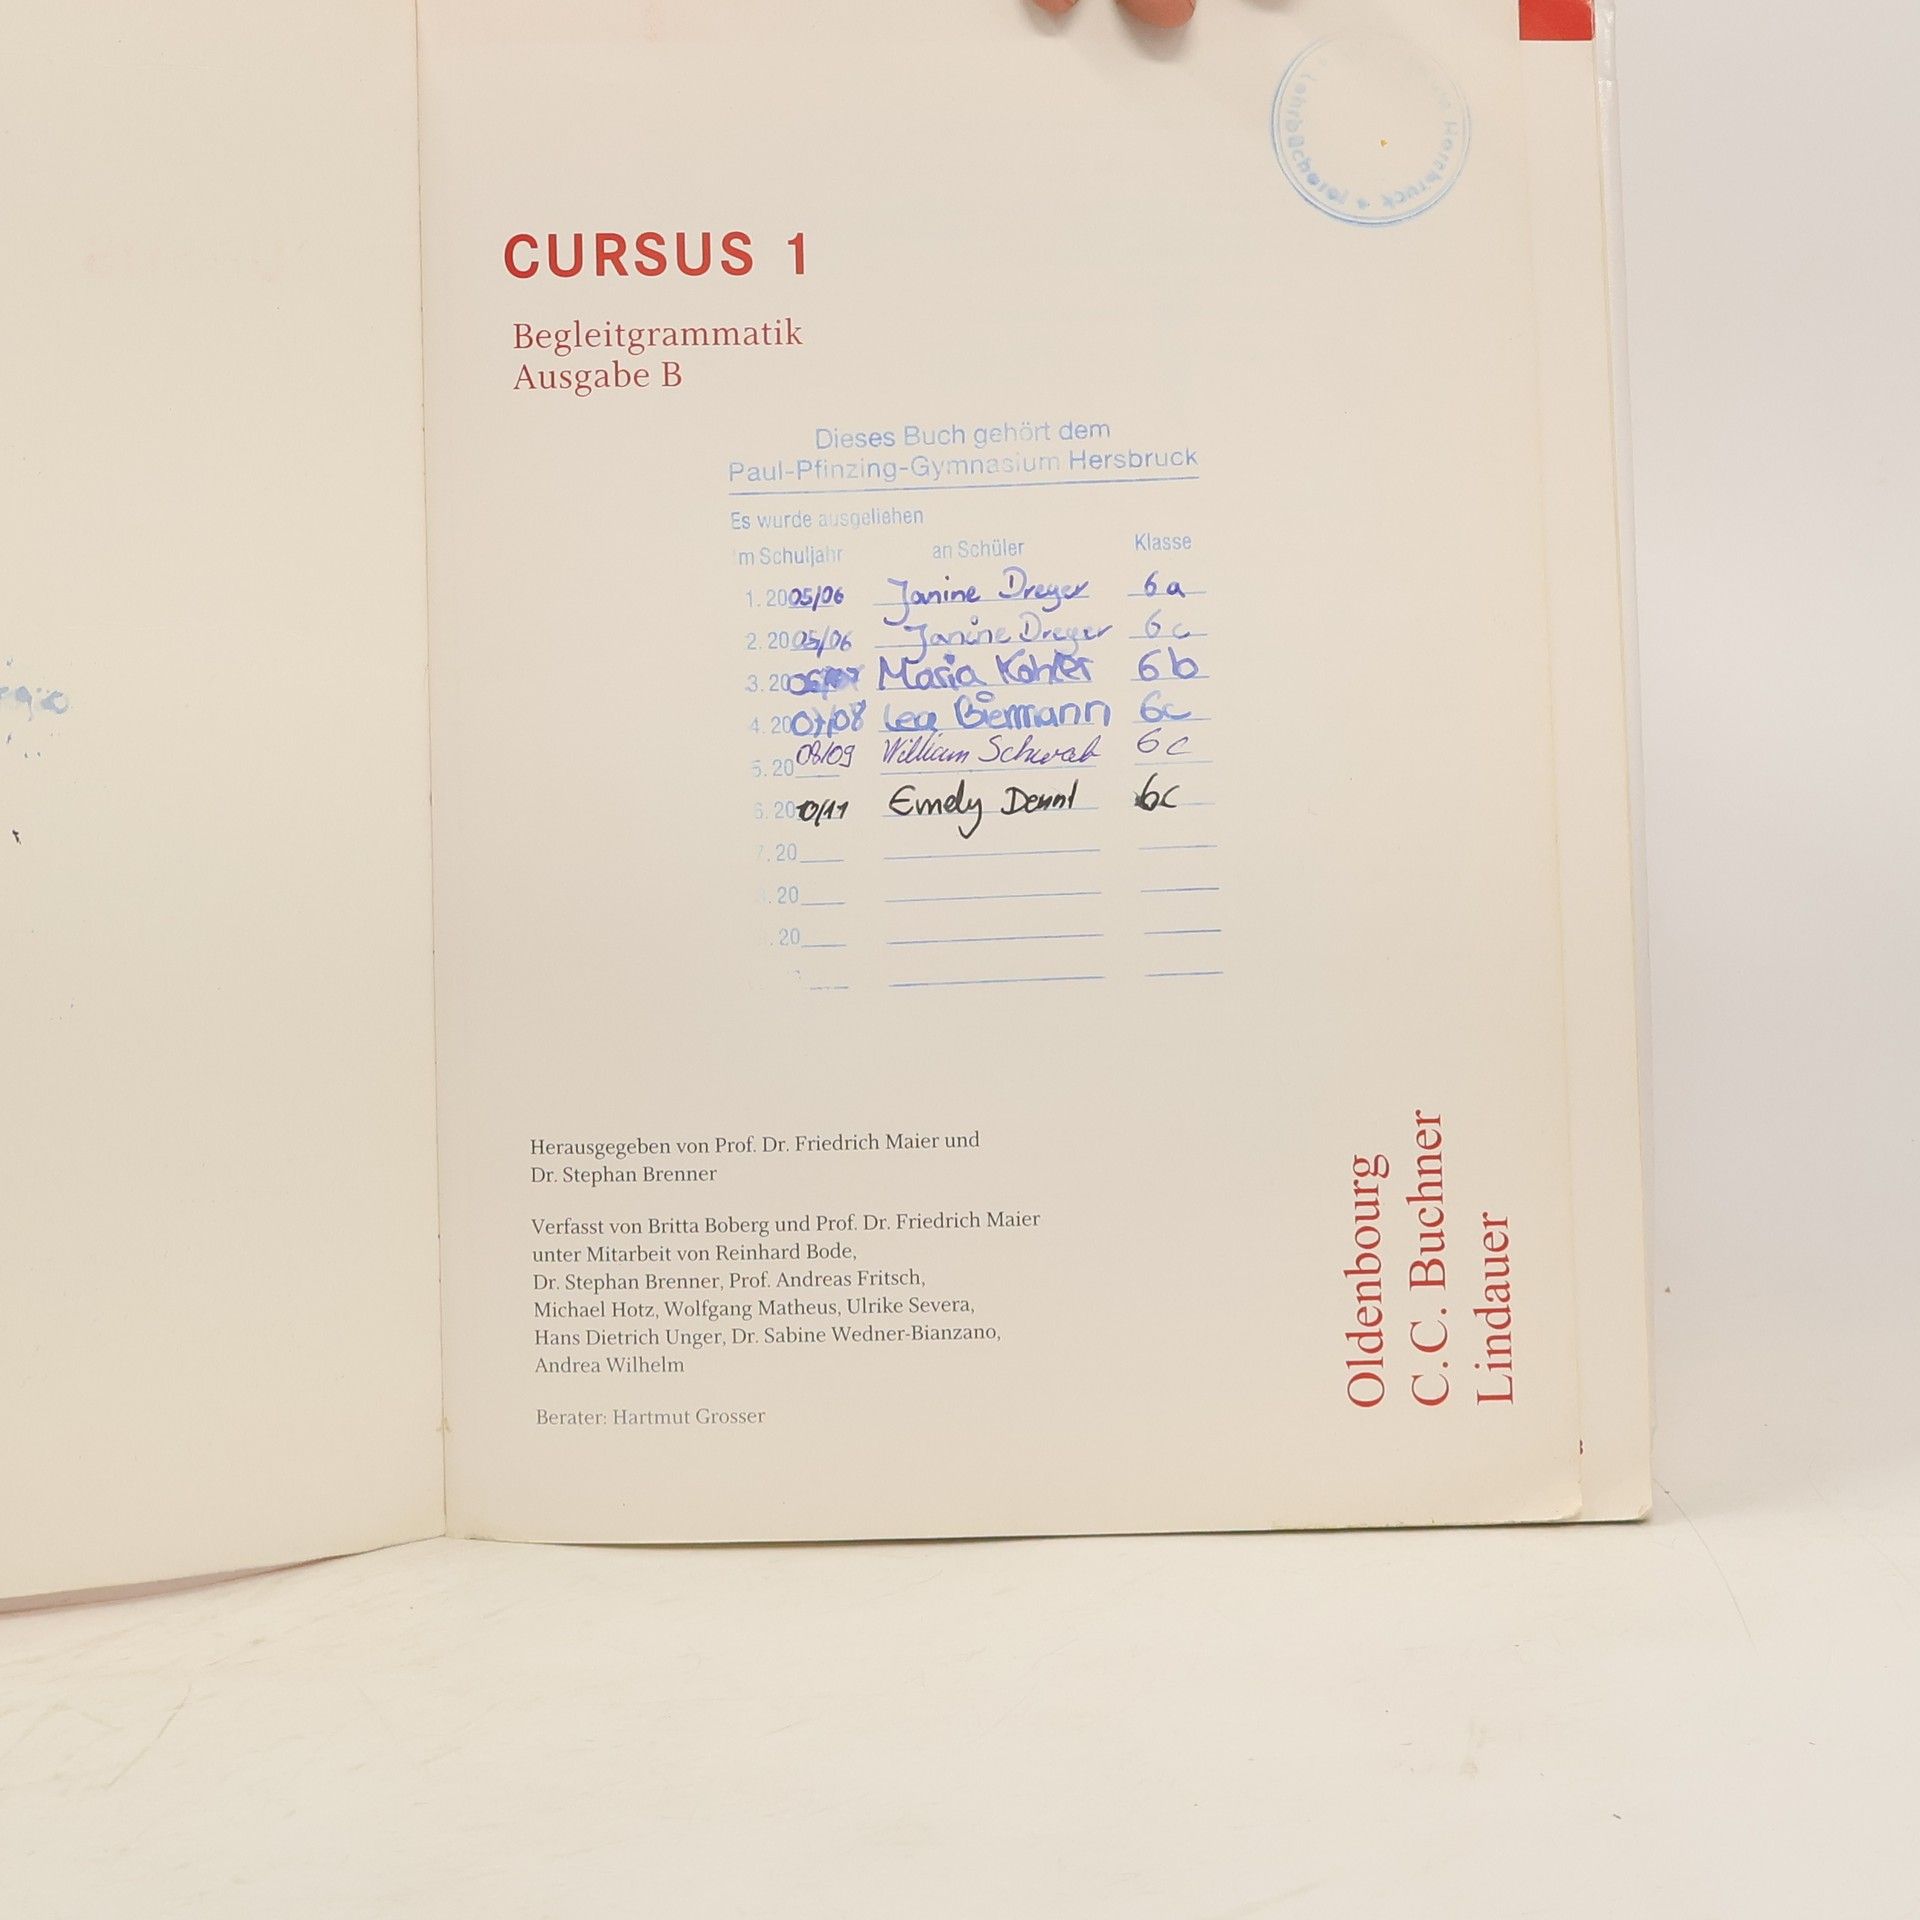 Lehrbücherei * Hersbruck *
CURSUS 1
Begleitgrammatik
Ausgabe B
Dieses Buch gehört dem
Paul-Pfinzing-Gymnasium Hersbruck
Es wurde ausgeliehen
m Schuljahr an Schüler Klasse
1. 2005/06 Janine Dreyer 6a
2. 2005/06 Janine Dreyer 6c
3. 2006/07 Maria Kohler 6b
4. 2007/08 Lea Biermann 6c
5. 2008/09 William Schwab 6c
6. 2010/11 Emely 6c
7. 20
. 20
. 20
Herausgegeben von Prof. Dr. Friedrich Maier und
Dr. Stephan Brenner
Verfasst von Britta Boberg und Prof. Dr. Friedrich Maier
unter Mitarbeit von Reinhard Bode,
Dr. Stephan Brenner, Prof. Andreas Fritsch,
Michael Hotz, Wolfgang Matheus, Ulrike Severa,
Hans Dietrich Unger, Dr. Sabine Wedner-Bianzano,
Andrea Wilhelm
Berater: Hartmut Grosser
Oldenbourg
C.C. Buchner
Lindauer